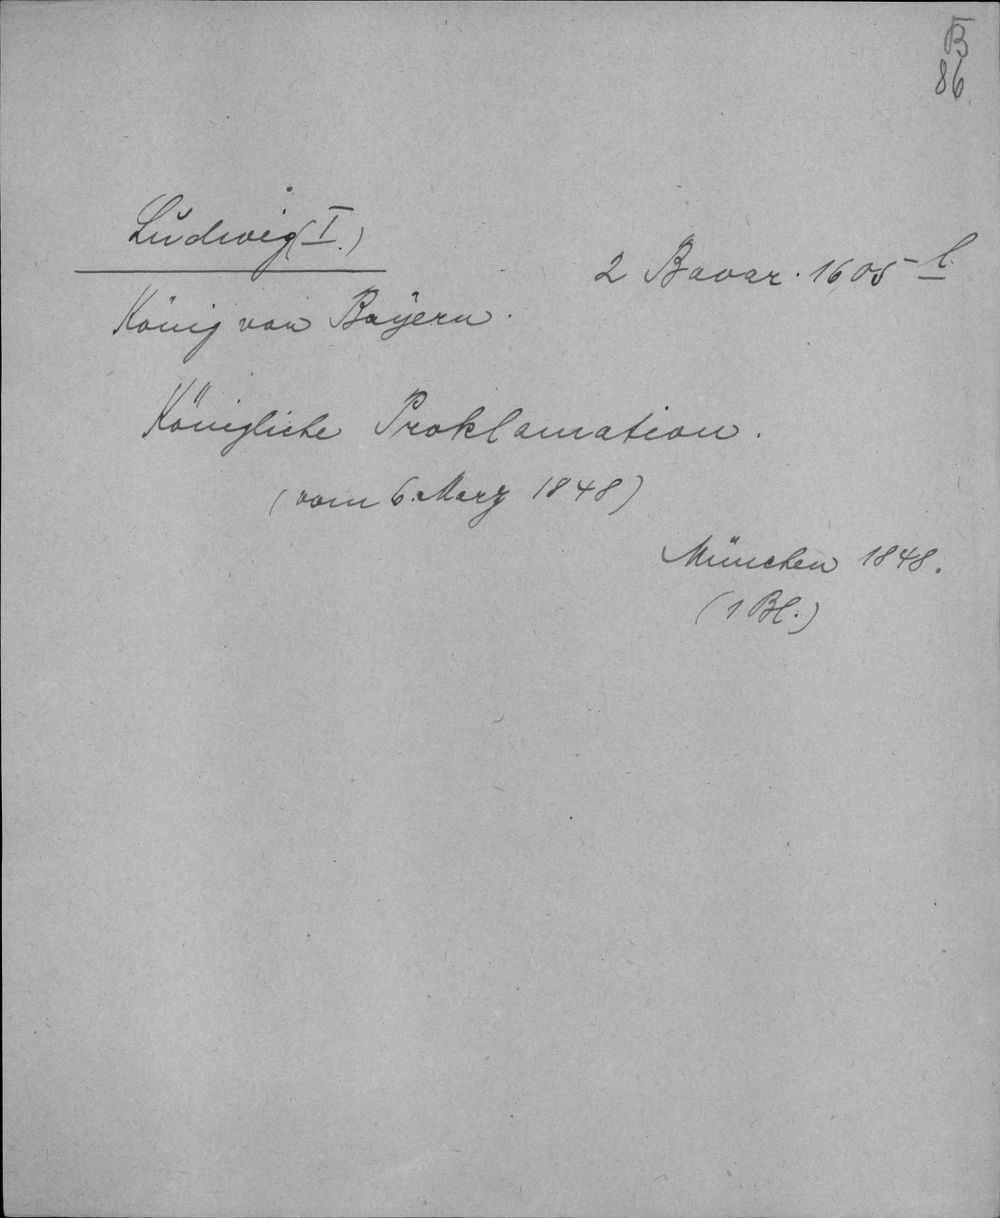 B
86
Ludwig (I.)
2 Bavar. 1605 l.
König von Bayern.
Königliche Proklamation.
(vom 6. März 1848)
München 1848.
(1 Bl.)